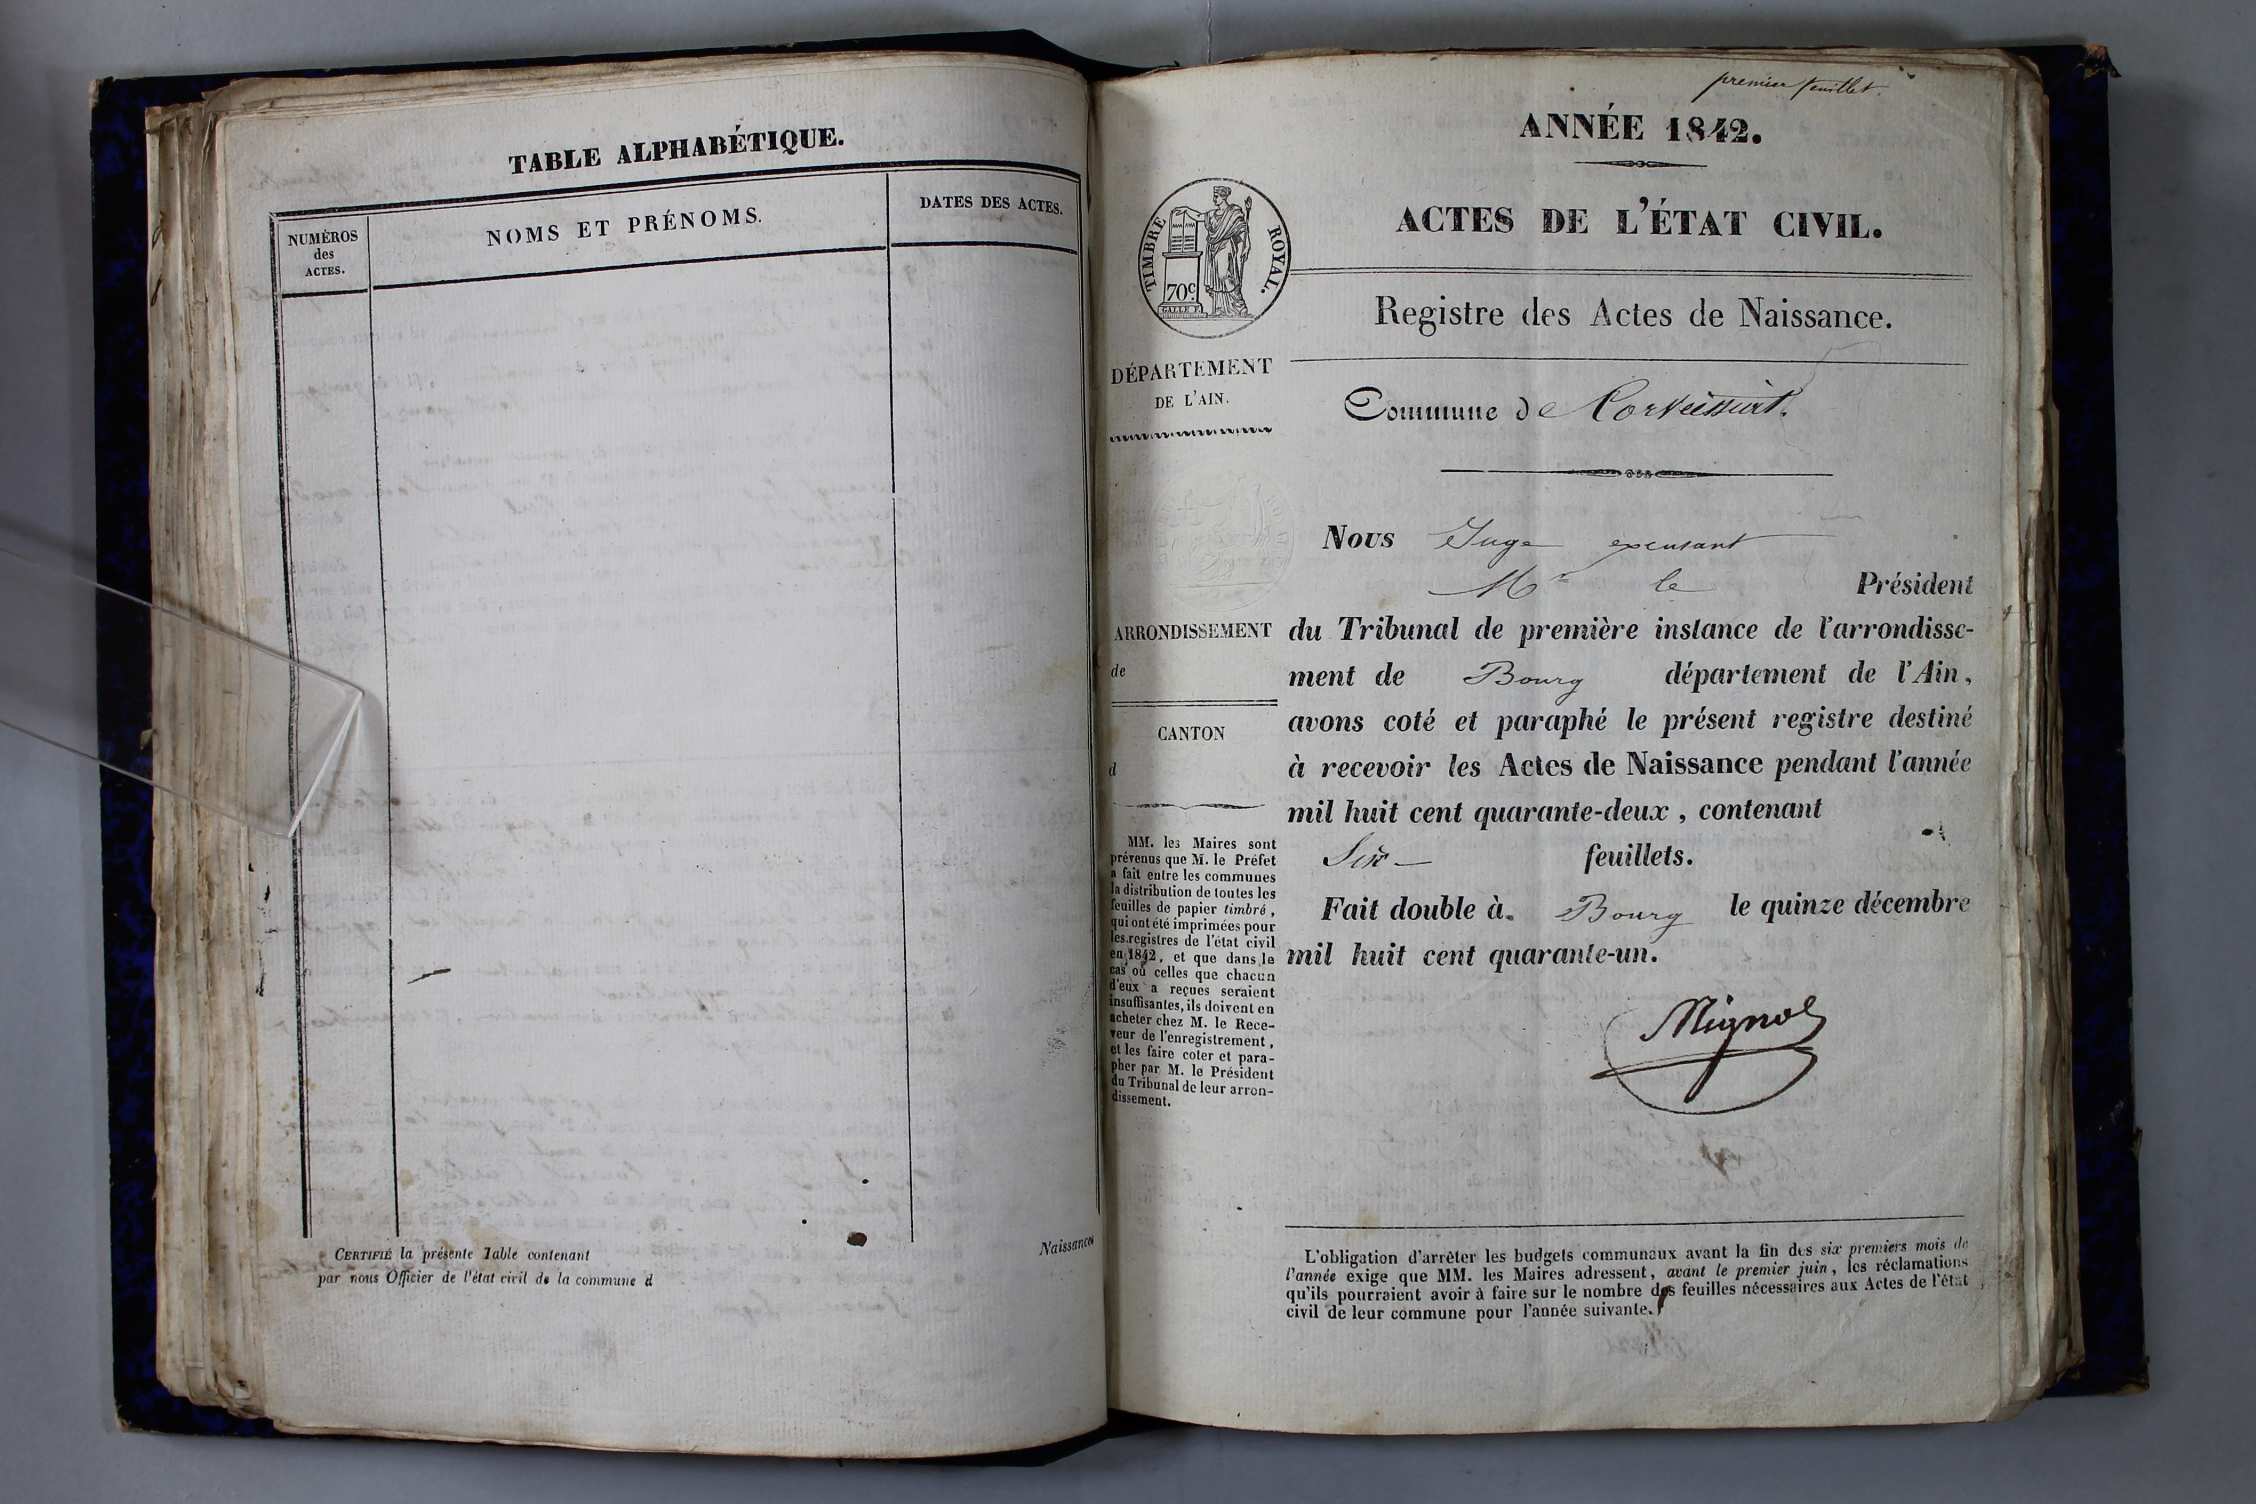 TABLE ALPHABÉTIQUE.
NUMÉROS
des
ACTES.
NOMS ET PRÉNOMS.
DATES DES ACTES.
CERTIFIÉ la présente Table contenant
par nous Officier de l'état civil de la commune d
Naissances
premier feuillet.
ANNÉE 1842.
ACTES DE L'ÉTAT CIVIL.
TIMBRE ROYAL.
70c.
Registre des Actes de Naissance.
DÉPARTEMENT
DE L'AIN.
Commune de
ARRONDISSEMENT
de
CANTON
d
MM. les Maires sont
prévenus que M. le Préfet
a fait entre les communes
la distribution de toutes les
feuilles de papier timbré,
qui ont été imprimées pour
les registres de l'état civil
en 1842, et que dans le
cas où celles que chacun
d'eux a reçues seraient
insuffisantes, ils doivent en
acheter chez M. le Rece-
veur de l'enregistrement,
et les faire coter et para-
pher par M. le Président
du Tribunal de leur arron-
dissement.
Nous Juge excusant
Mr le Président
du Tribunal de première instance de l'arrondisse-
ment de Bourg département de l'Ain,
avons coté et paraphé le présent registre destiné
à recevoir les Actes de Naissance pendant l'année
mil huit cent quarante-deux, contenant
Six feuillets.
Fait double à Bourg le quinze décembre
mil huit cent quarante-un.
L'obligation d'arrêter les budgets communaux avant la fin des six premiers mois de
l'année exige que MM. les Maires adressent, avant le premier juin, les réclamations
qu'ils pourraient avoir à faire sur le nombre des feuilles nécessaires aux Actes de l'état
civil de leur commune pour l'année suivante.